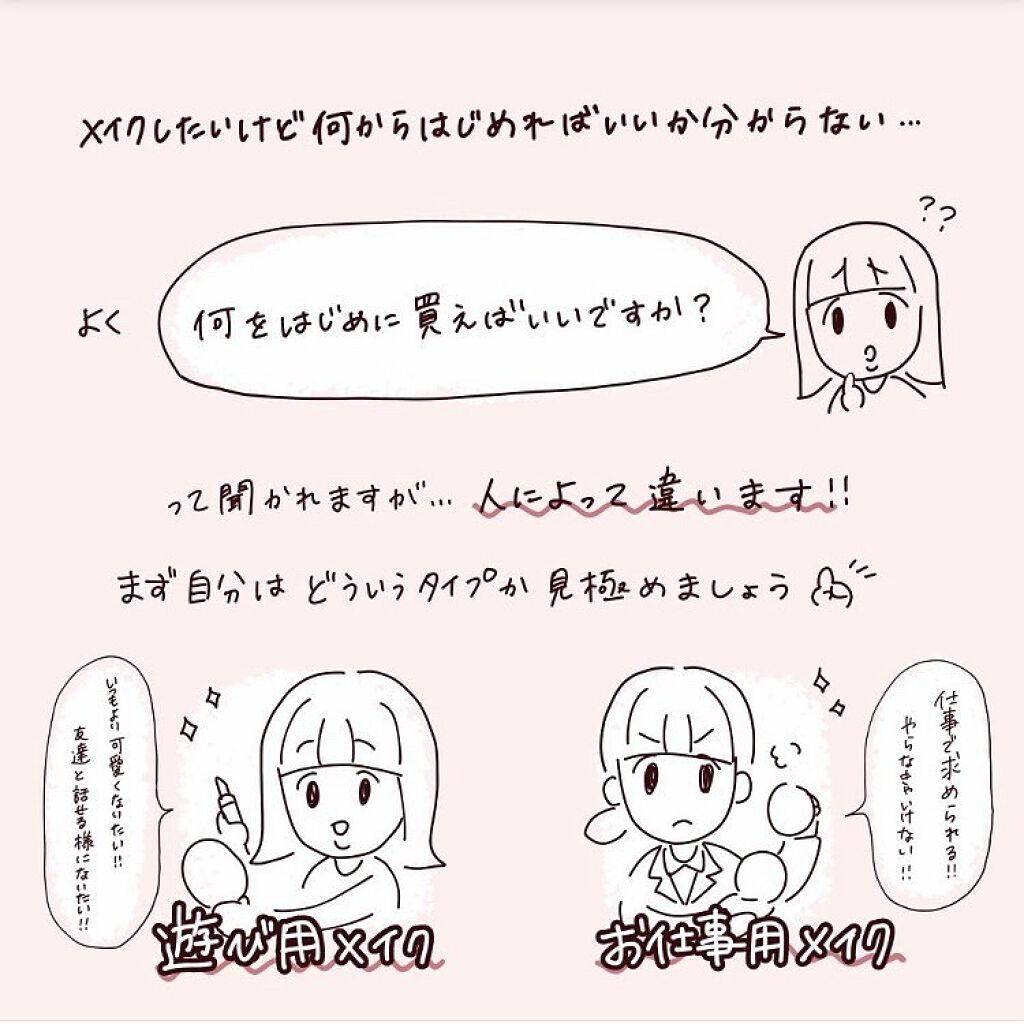 メイクしたいけど何からはじめればいいか分からない…
??
よく
何をはじめに買えばいいですか？
って聞かれますが… 人によって違います!!
まず自分は どういうタイプか 見極めましょう
いつもより可愛くなりたい!!
友達と話せる様になりたい!!
遊び用メイク
仕事で求められる!!
やらなきゃいけない!!
お仕事用メイク